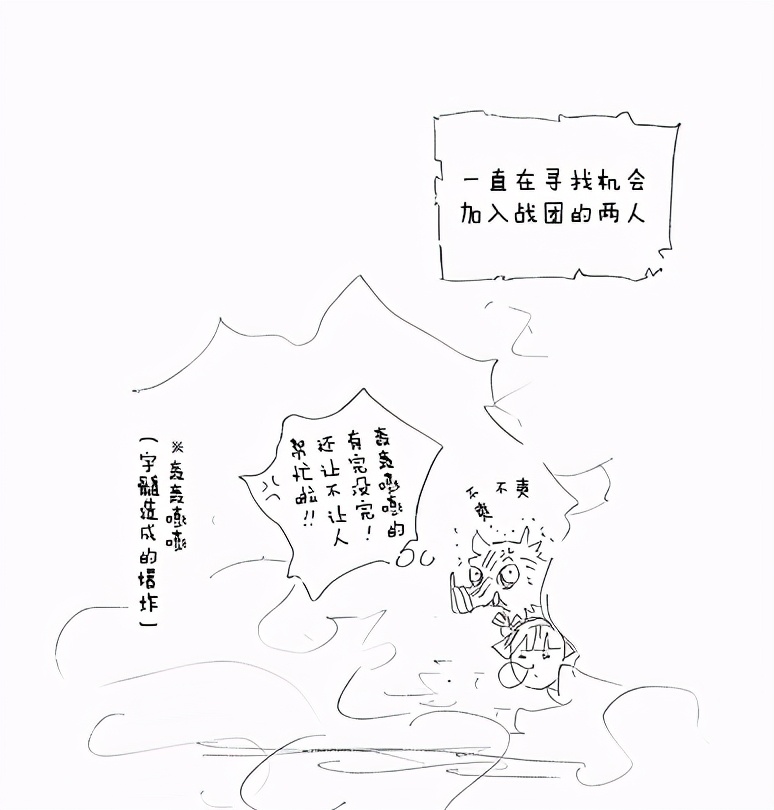 一直在寻找机会
加入战团的两人
轰轰嘭嘭的
有完没完！
还让不让人
帮忙啦!!
不爽
不爽
※轰轰嘭嘭
(宇髄造成的爆炸)